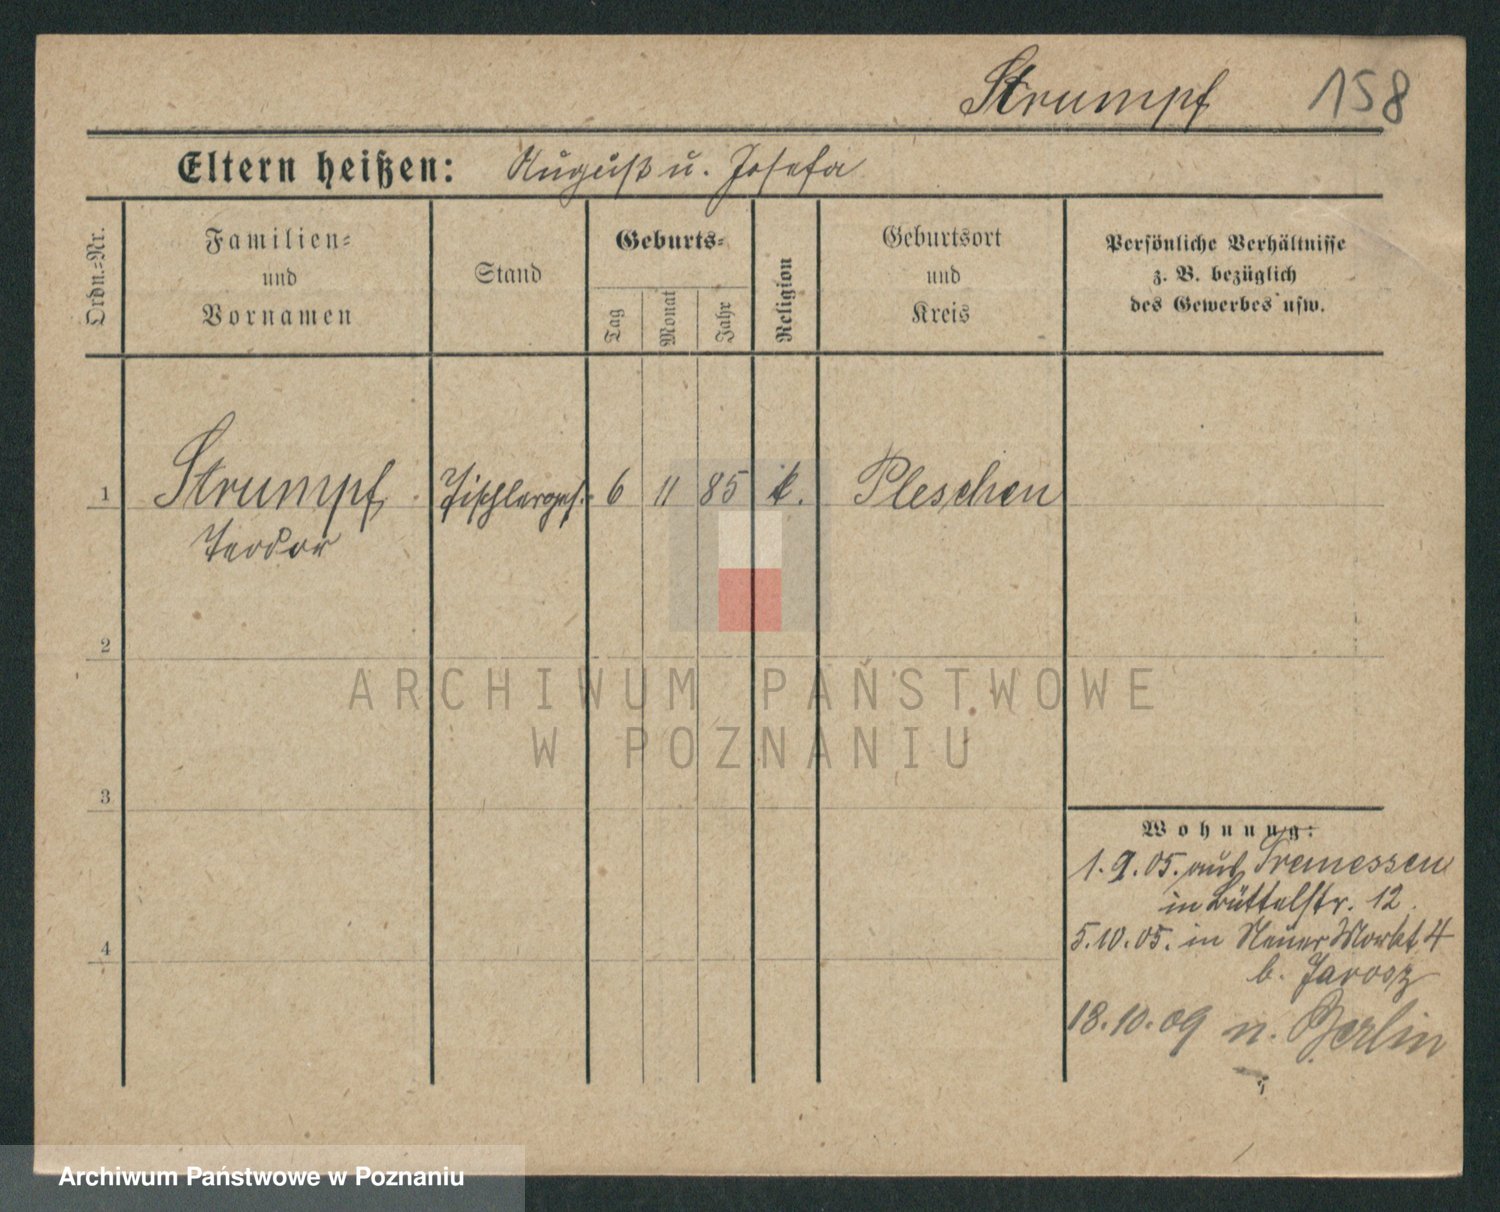 Strumpf 158
Eltern heißen: August u. Josefa
Ordn.-Nr.
Familien-
und
Vornamen
Stand
Geburts-
Tag
Monat
Jahr
Religion
Geburtsort
und
Kreis
Persönliche Verhältnisse
z. B. bezüglich
des Gewerbes usw.
1 Strumpf Tischlerges. 6 11 85 k. Pleschen
Teodor
2
3
4
Wohnung:
1.9.05. aus Tremessen
in Büttelstr. 12.
5.10.05. in Neuer Markt 4
b. Jarosz
18.10.09 n. Berlin
ARCHIWUM PAŃSTWOWE
W POZNANIU
Archiwum Państwowe w Poznaniu